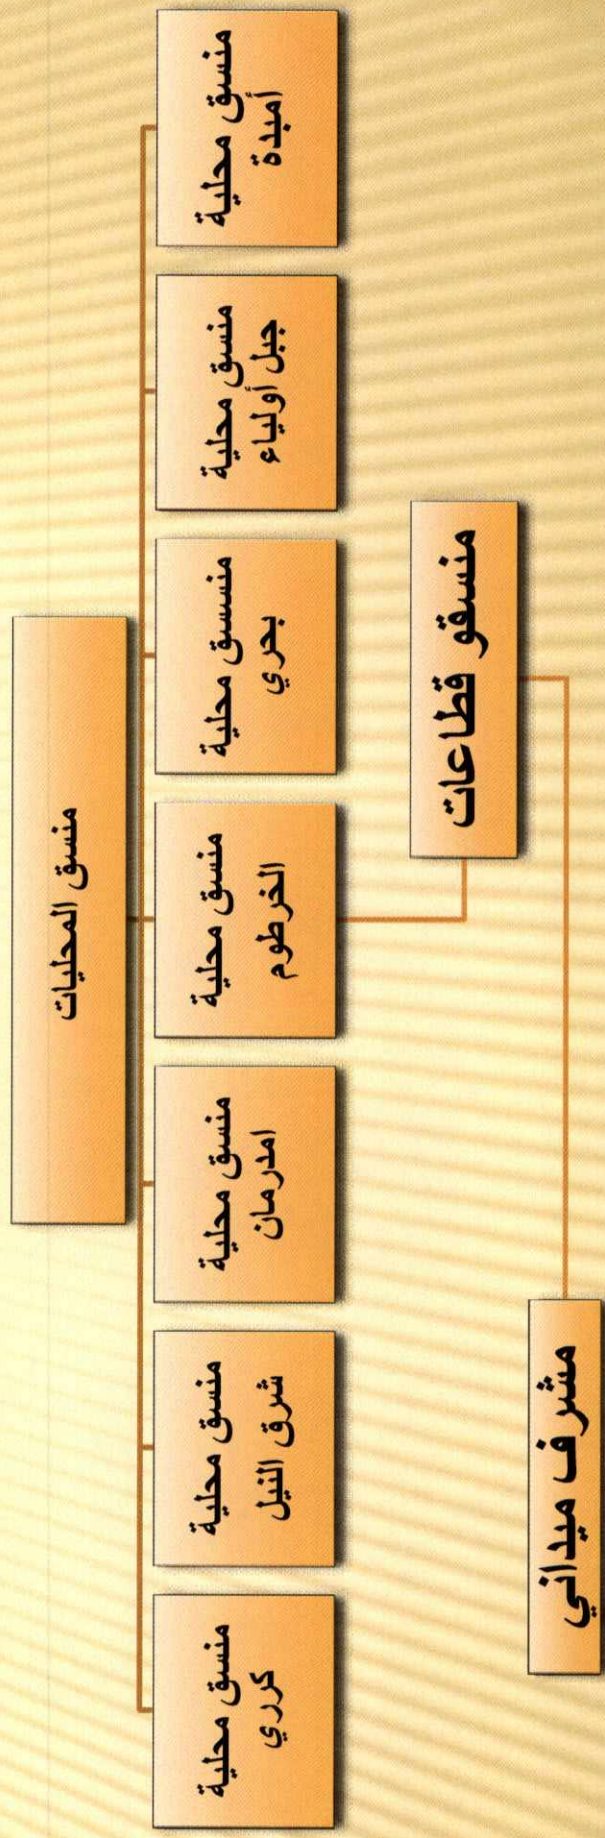 منسق المحليات
منسق محلية
أمبدة
منسق محلية
جبل أولياء
منسسق محلية
بحري
منسق محلية
الخرطوم
منسق محلية
امدرمان
منسق محلية
شرق النيل
منسق محلية
كرري
منسقو قطاعات
مشرف ميداني